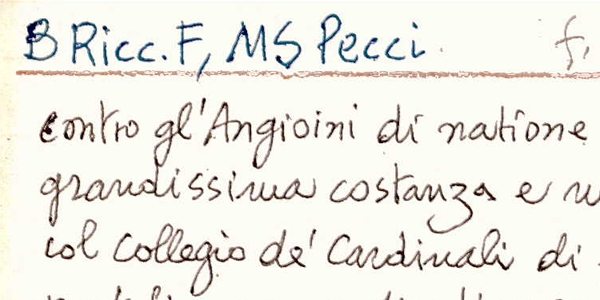 B Ricc. F, MS Pecci. f.
contro gl'Angioini di natione
grandissima costanza e
col Collegio de' Cardinali di